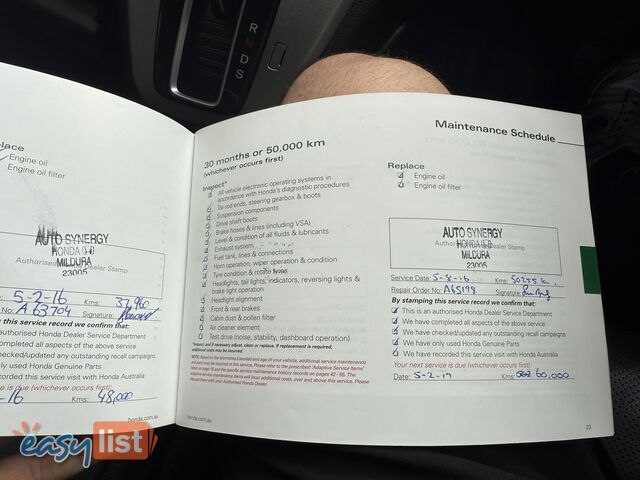 R
N
D
S
place
Engine oil
Engine oil filter
AUTO SYNERGY
HONDA
MILDURA
23005
Authorised Dealer Stamp
5-2-16 Kms: 37,960
No: A 63704 Signature:
g this service record we confirm that:
authorised Honda Service Department
completed all aspects of the above service
checked/updated any outstanding recall campaigns
ly used Honda Genuine Parts
recorded this service visit with Honda Australia
e is due (whichever occurs first)
-16 Kms: 48,000
30 months or 50,000 km
(whichever occurs first)
Inspect*
All vehicle electronic operating systems in
accordance with Honda's diagnostic procedures
Tie rod ends, steering gearbox & boots
Suspension components
Drive shaft boots
Brake hoses & lines (including VSA)
Level & condition of all fluids & lubricants
Exhaust system
Fuel tank, lines & connections
Horn operation, wiper operation & condition
Tyre condition & rotate tyres
Headlights, tail lights, indicators, reversing lights &
brake light operation
Headlight alignment
Front & rear brakes
Cabin dust & pollen filter
Air cleaner element
Test drive (noise, stability, dashboard operation)
*Inspect, and if necessary adjust, clean or replace. If replacement is required,
additional costs may be incurred.
NOTE: Based on the kilometres travelled and age of your vehicle, additional service maintenance
and parts may be required at this service. Please refer to the prescribed 'Adaptive Service Items'
listed on page 15 and the specific service maintenance history records on pages 42 - 55. The
adaptive service maintenance items will incur additional costs, over and above this service. Please
discuss them with your Authorised Honda Dealer.
honda.com.au
Maintenance Schedule
Replace
Engine oil
Engine oil filter
AUTO SYNERGY
HONDA
Authorised Honda Dealer Stamp
MILDURA
23005
Service Date: 5-8-16 Kms: 50255 km
Repair Order No: A65198 Signature:
By stamping this service record we confirm that:
This is an authorised Honda Dealer Service Department
We have completed all aspects of the above service
We have checked/updated any outstanding recall campaigns
We have only used Honda Genuine Parts
We have recorded this service visit with Honda Australia
Your next service is due (whichever occurs first)
Date: 5-2-17 Kms: 60,000
honda.com.au
23
easylist